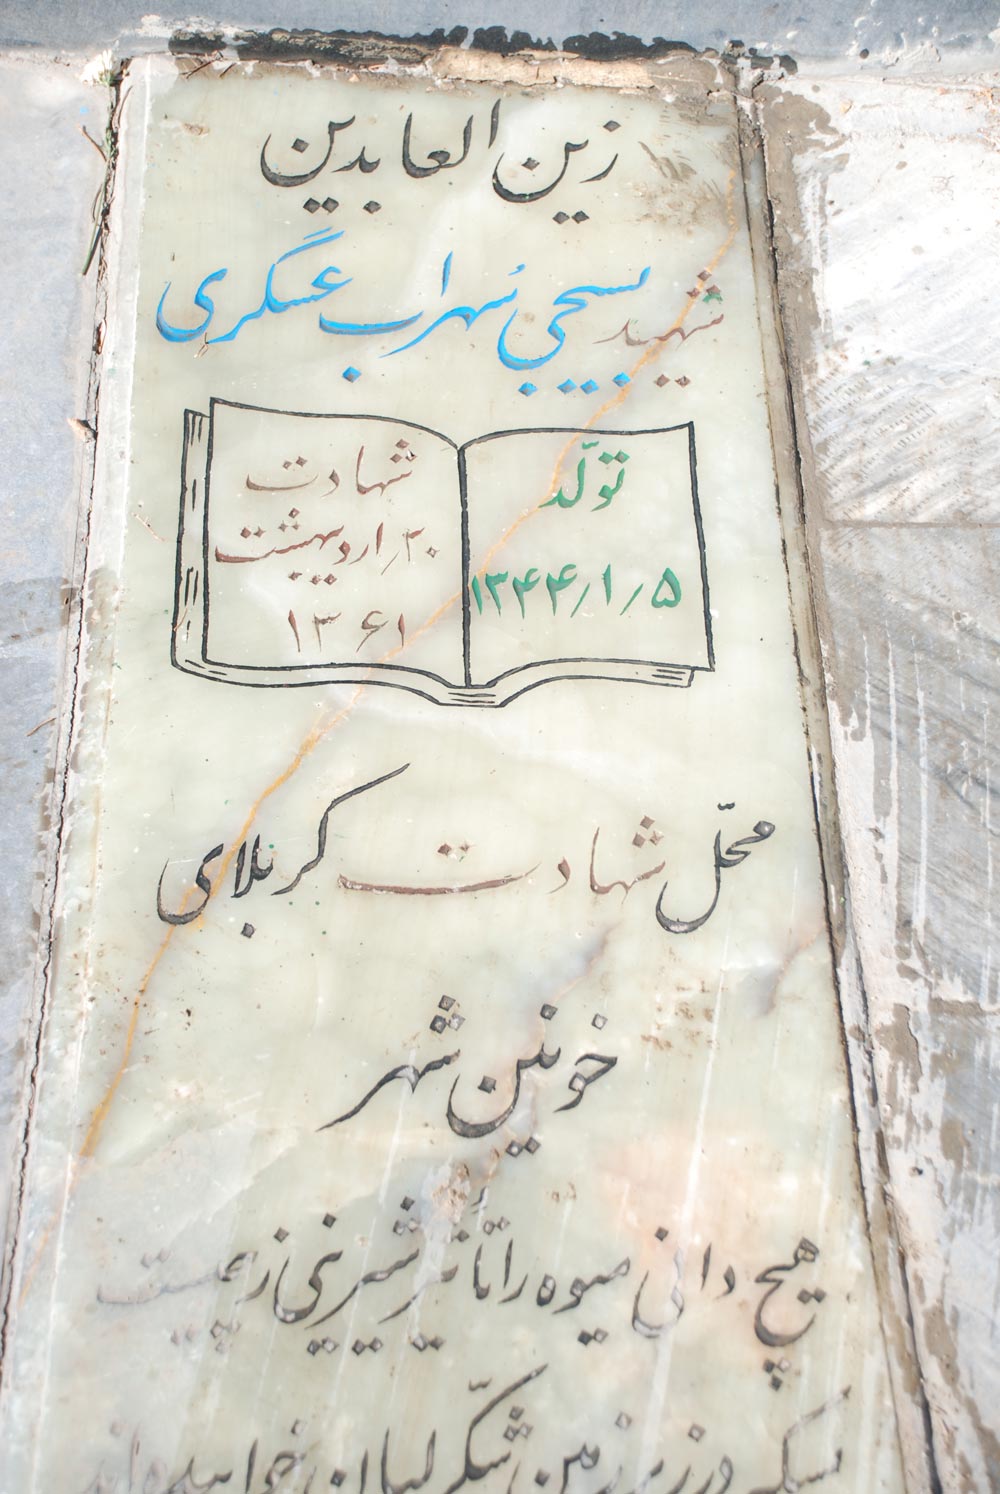 زین العابدین
شهید بسیجی سُهراب عسگری
تولّد
۱۳۴۴/۱/۵
شهادت
۲۰/اردیبهشت
۱۳۶۱
محلّ شهادت کربلای
خونین شهر
هیچ دانی میوه را تاثیر شیرینی ز چیست
بسکه در زیر زمین شکّر لبان خوابیده‌اند